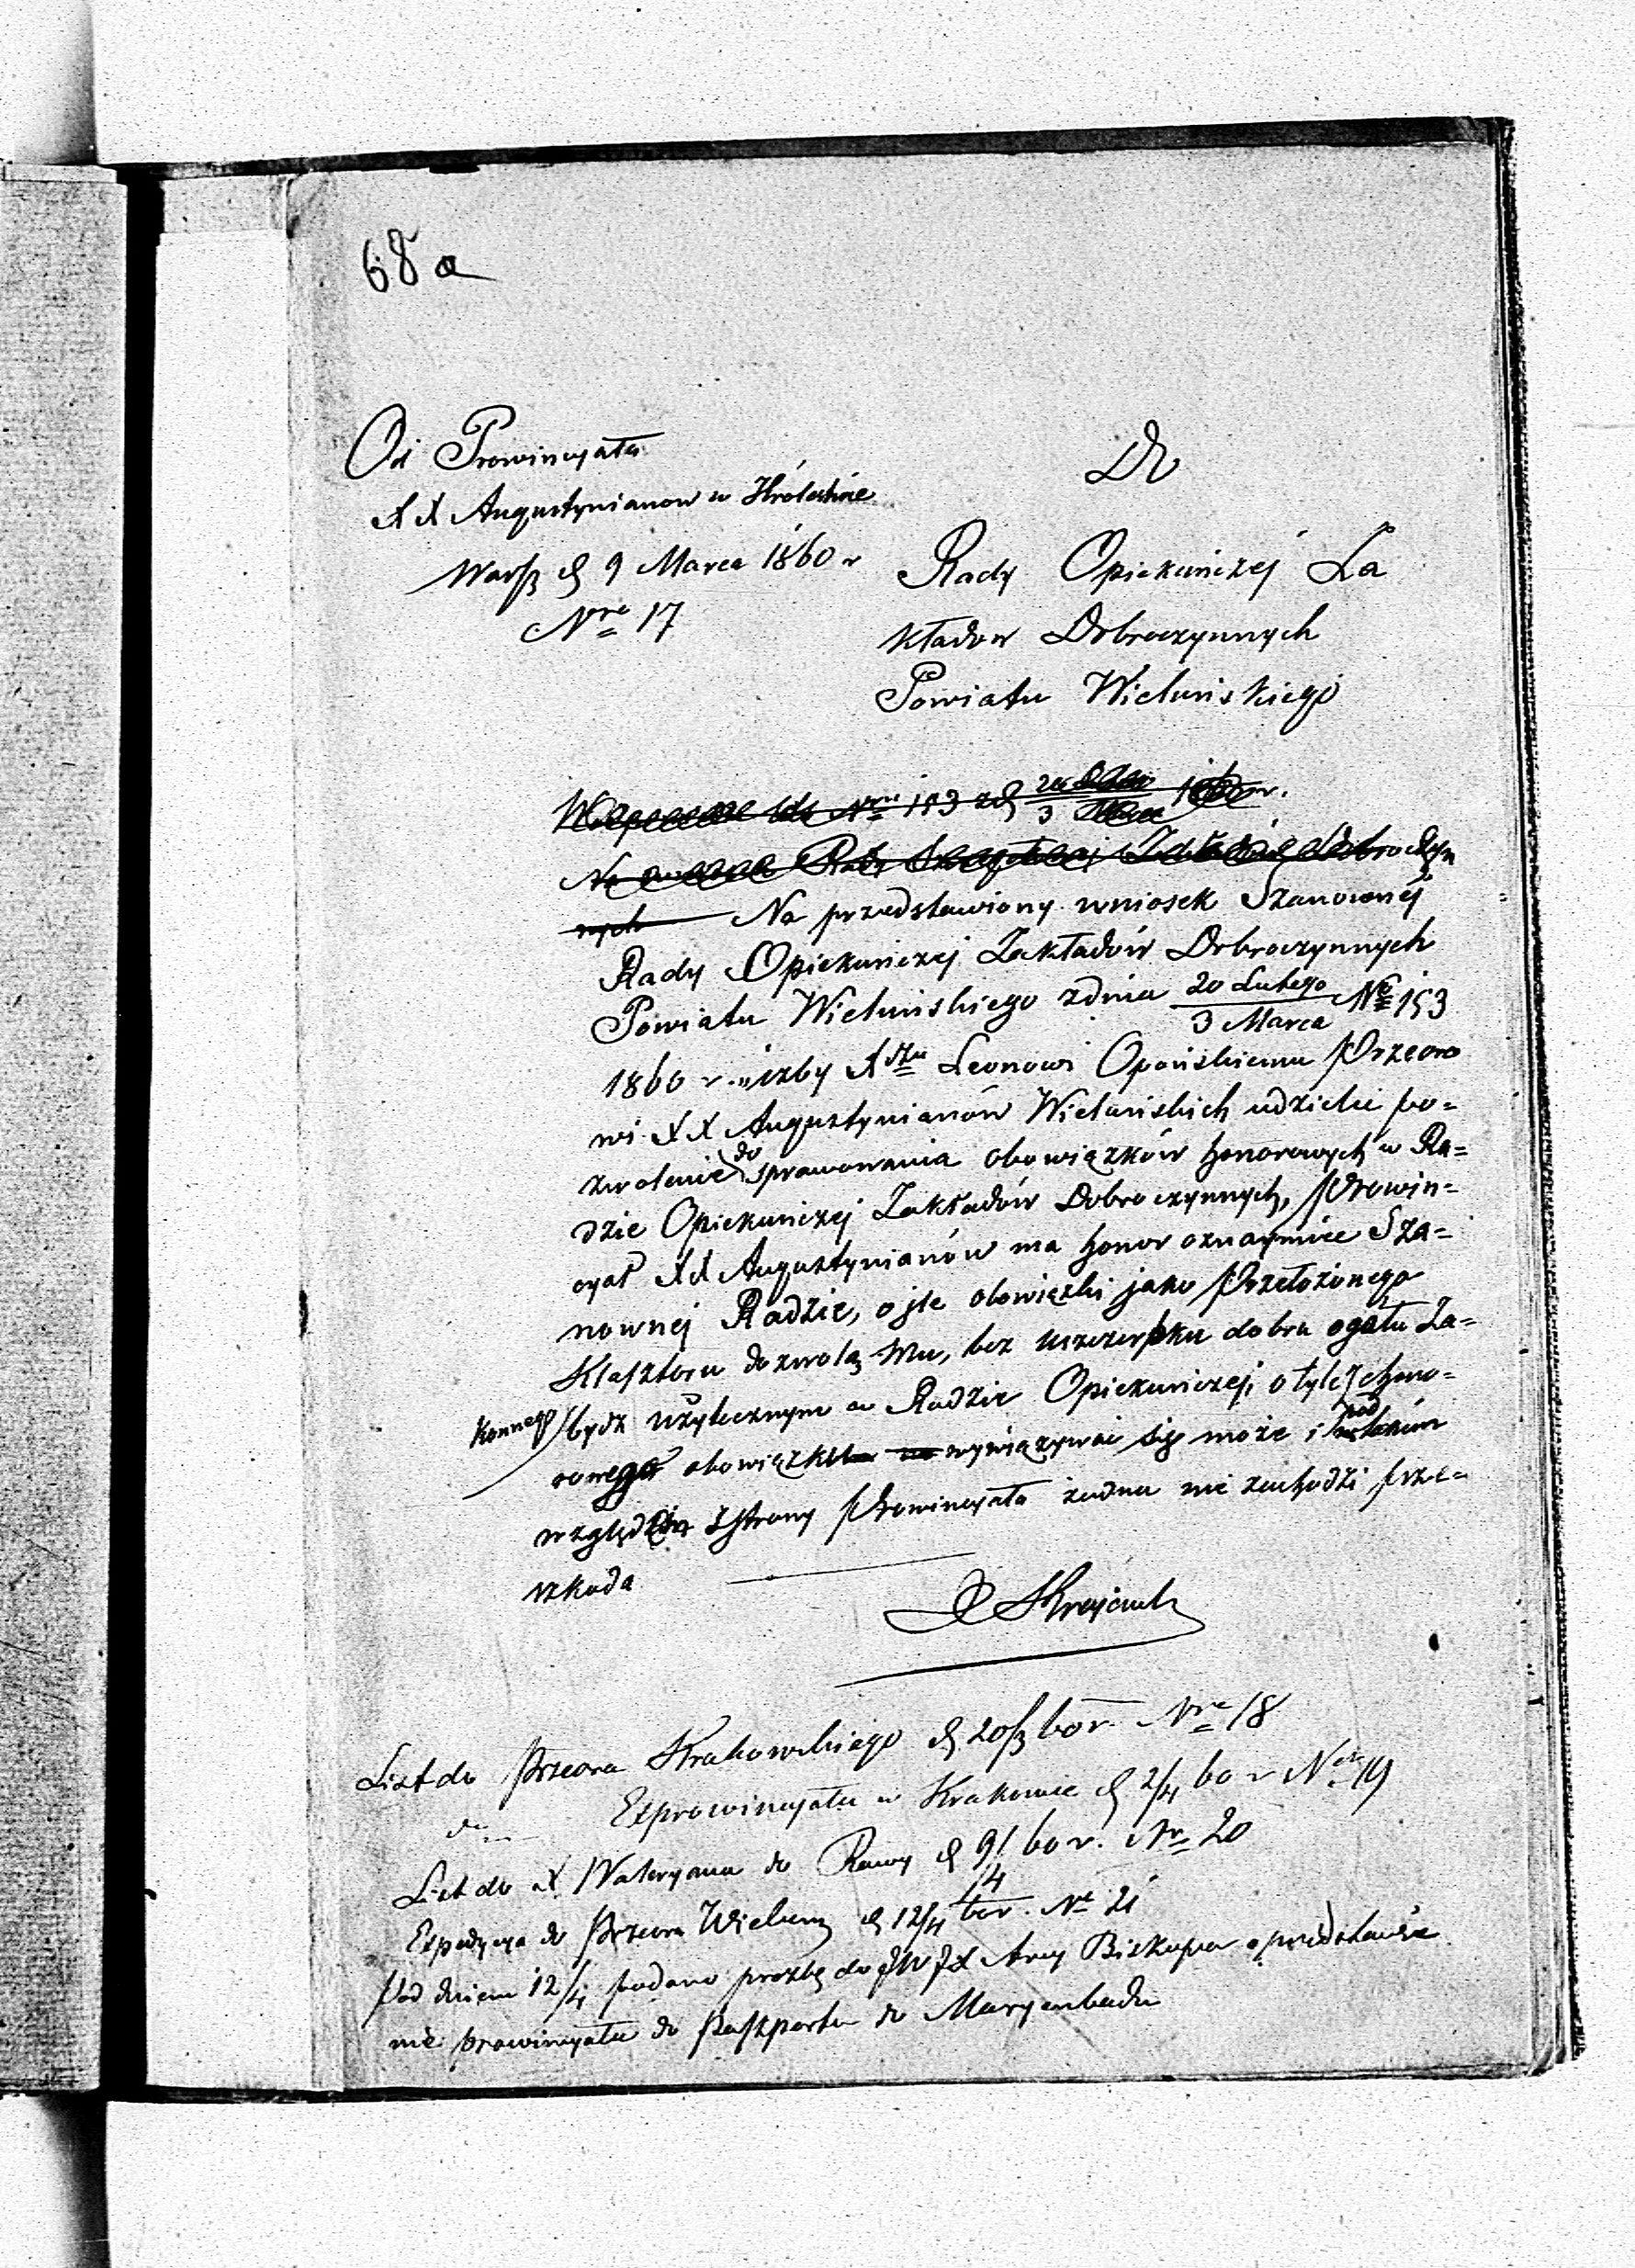 68 a
Od Prowincyała
XX Augustynianow w Królestwie
Warsz d 9 Marca 1860 r
Nro 17
Do
Rady Opiekuńczéj Za
kładow Dobroczynnych
Powiatu Wieluńskiego
Nro 153 zd 3
Na Rady Dobroczyn
nych Na przedstawiony wniosek Szanownéj
Rady Opiekuńczéj Zakładów Dobroczynnych
Powiatu Wieluńskiego zdnia 20 Lutego / 3 Marca No 153
1860 r. „iżby Xdzu Leonowi Opońskiemu Przeoro
wi XX Augustynianów Wieluńskich udzielić po=
zwolenie do sprawowania obowiązków honorowych w Ra=
dzie Opiekuńczéj Zakładów Dobroczynnych, Prowin=
cyał XX Augustynianów ma honor oznaymić Sza=
nownéj Radzie, o jle obowiązki jako Przełożonego
Klasztoru dozwolą mu, bez uszczerbku dobra ogółu Za=
konnego bydź użytecznym w Radzie Opiekuńczéj, o tyle z hono=
rowego obowiązku wywiązywać się może i pod takim
względem z strony Prowincyała żadna nie zachodzi prze=
szkoda
Krajczyk
List do Przeora Krakowskiego d 20/3 60 r. Nro 18
do Exprowincyała w Krakowie d 2/4 60 r Nro 19
List do X Waleryana do Rawy d 9/4 60 r. Nr 20
Expedycya do Przeora Wieluń d 12/4 60 r. No 21
Pod dniem 12/4 podano prozbę do JWJX Arcy Biskupa o przedstawie
nie prowincyała do Paszportu do Maryenbadu